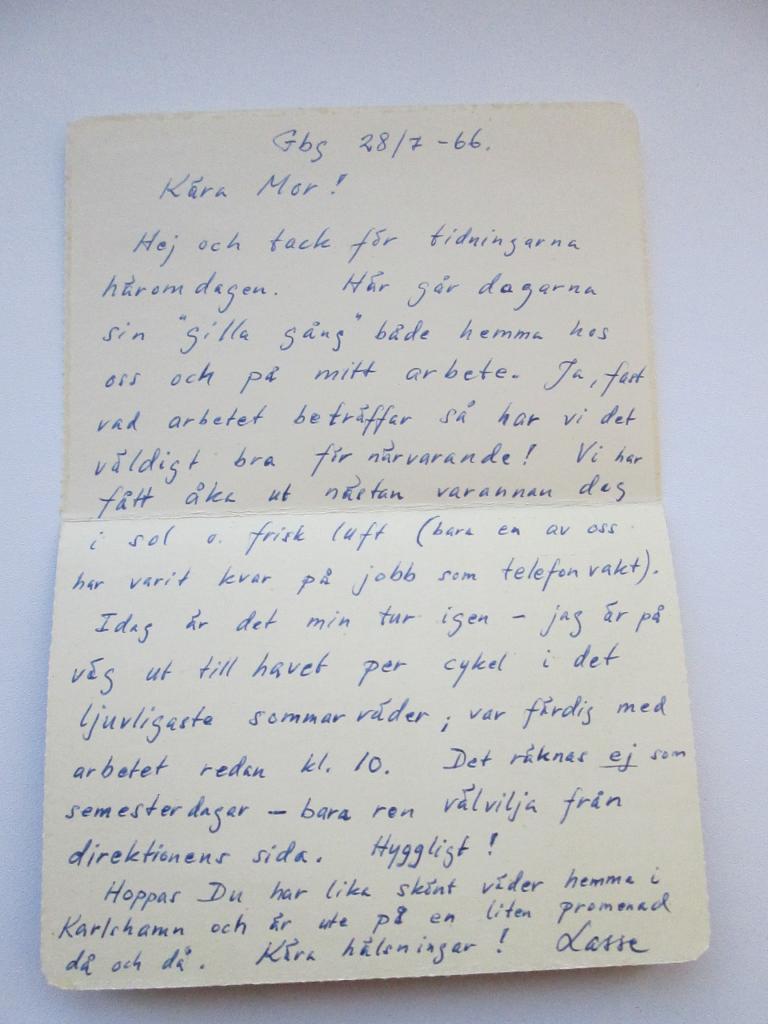 Gbg 28/7 -66.
Kära Mor!
Hej och tack för tidningarna
häromdagen. Här går dagarna
sin "gilla gång" både hemma hos
oss och på mitt arbete. Ja, fast
vad arbetet beträffar så har vi det
väldigt bra för närvarande! Vi har
fått åka ut nästan varannan dag
i sol o. frisk luft (bara en av oss
har varit kvar på jobb som telefonvakt).
Idag är det min tur igen – jag är på
väg ut till havet per cykel i det
ljuvligaste sommarväder; var färdig med
arbetet redan kl. 10. Det räknas ej som
semesterdagar – bara ren välvilja från
direktionens sida. Hyggligt!
Hoppas Du har lika skönt väder hemma i
Karlshamn och är ute på en liten promenad
då och då. Kära hälsningar! Lasse